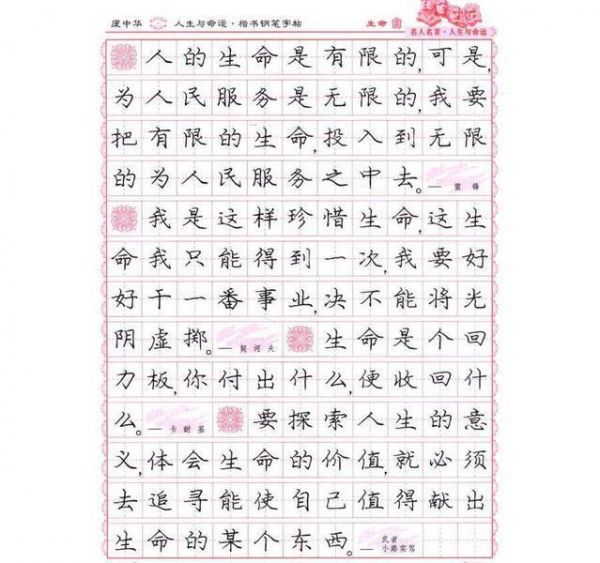 庞中华 人生与命运·楷书钢笔字帖 生命
名人名言·人生与命运
人的生命是有限的,可是,
为人民服务是无限的,我要
把有限的生命,投入到无限
的为人民服务之中去。—雷锋
我是这样珍惜生命,这生
命我只能得到一次,我要好
好干一番事业,决不能将光
阴虚掷。—契诃夫 生命是个回
力板,你付出什么,便收回什
么。—卡耐基 要探索人生的意
义,体会生命的价值,就必须
去追寻能使自己值得献出
生命的某个东西。—武者小路实笃